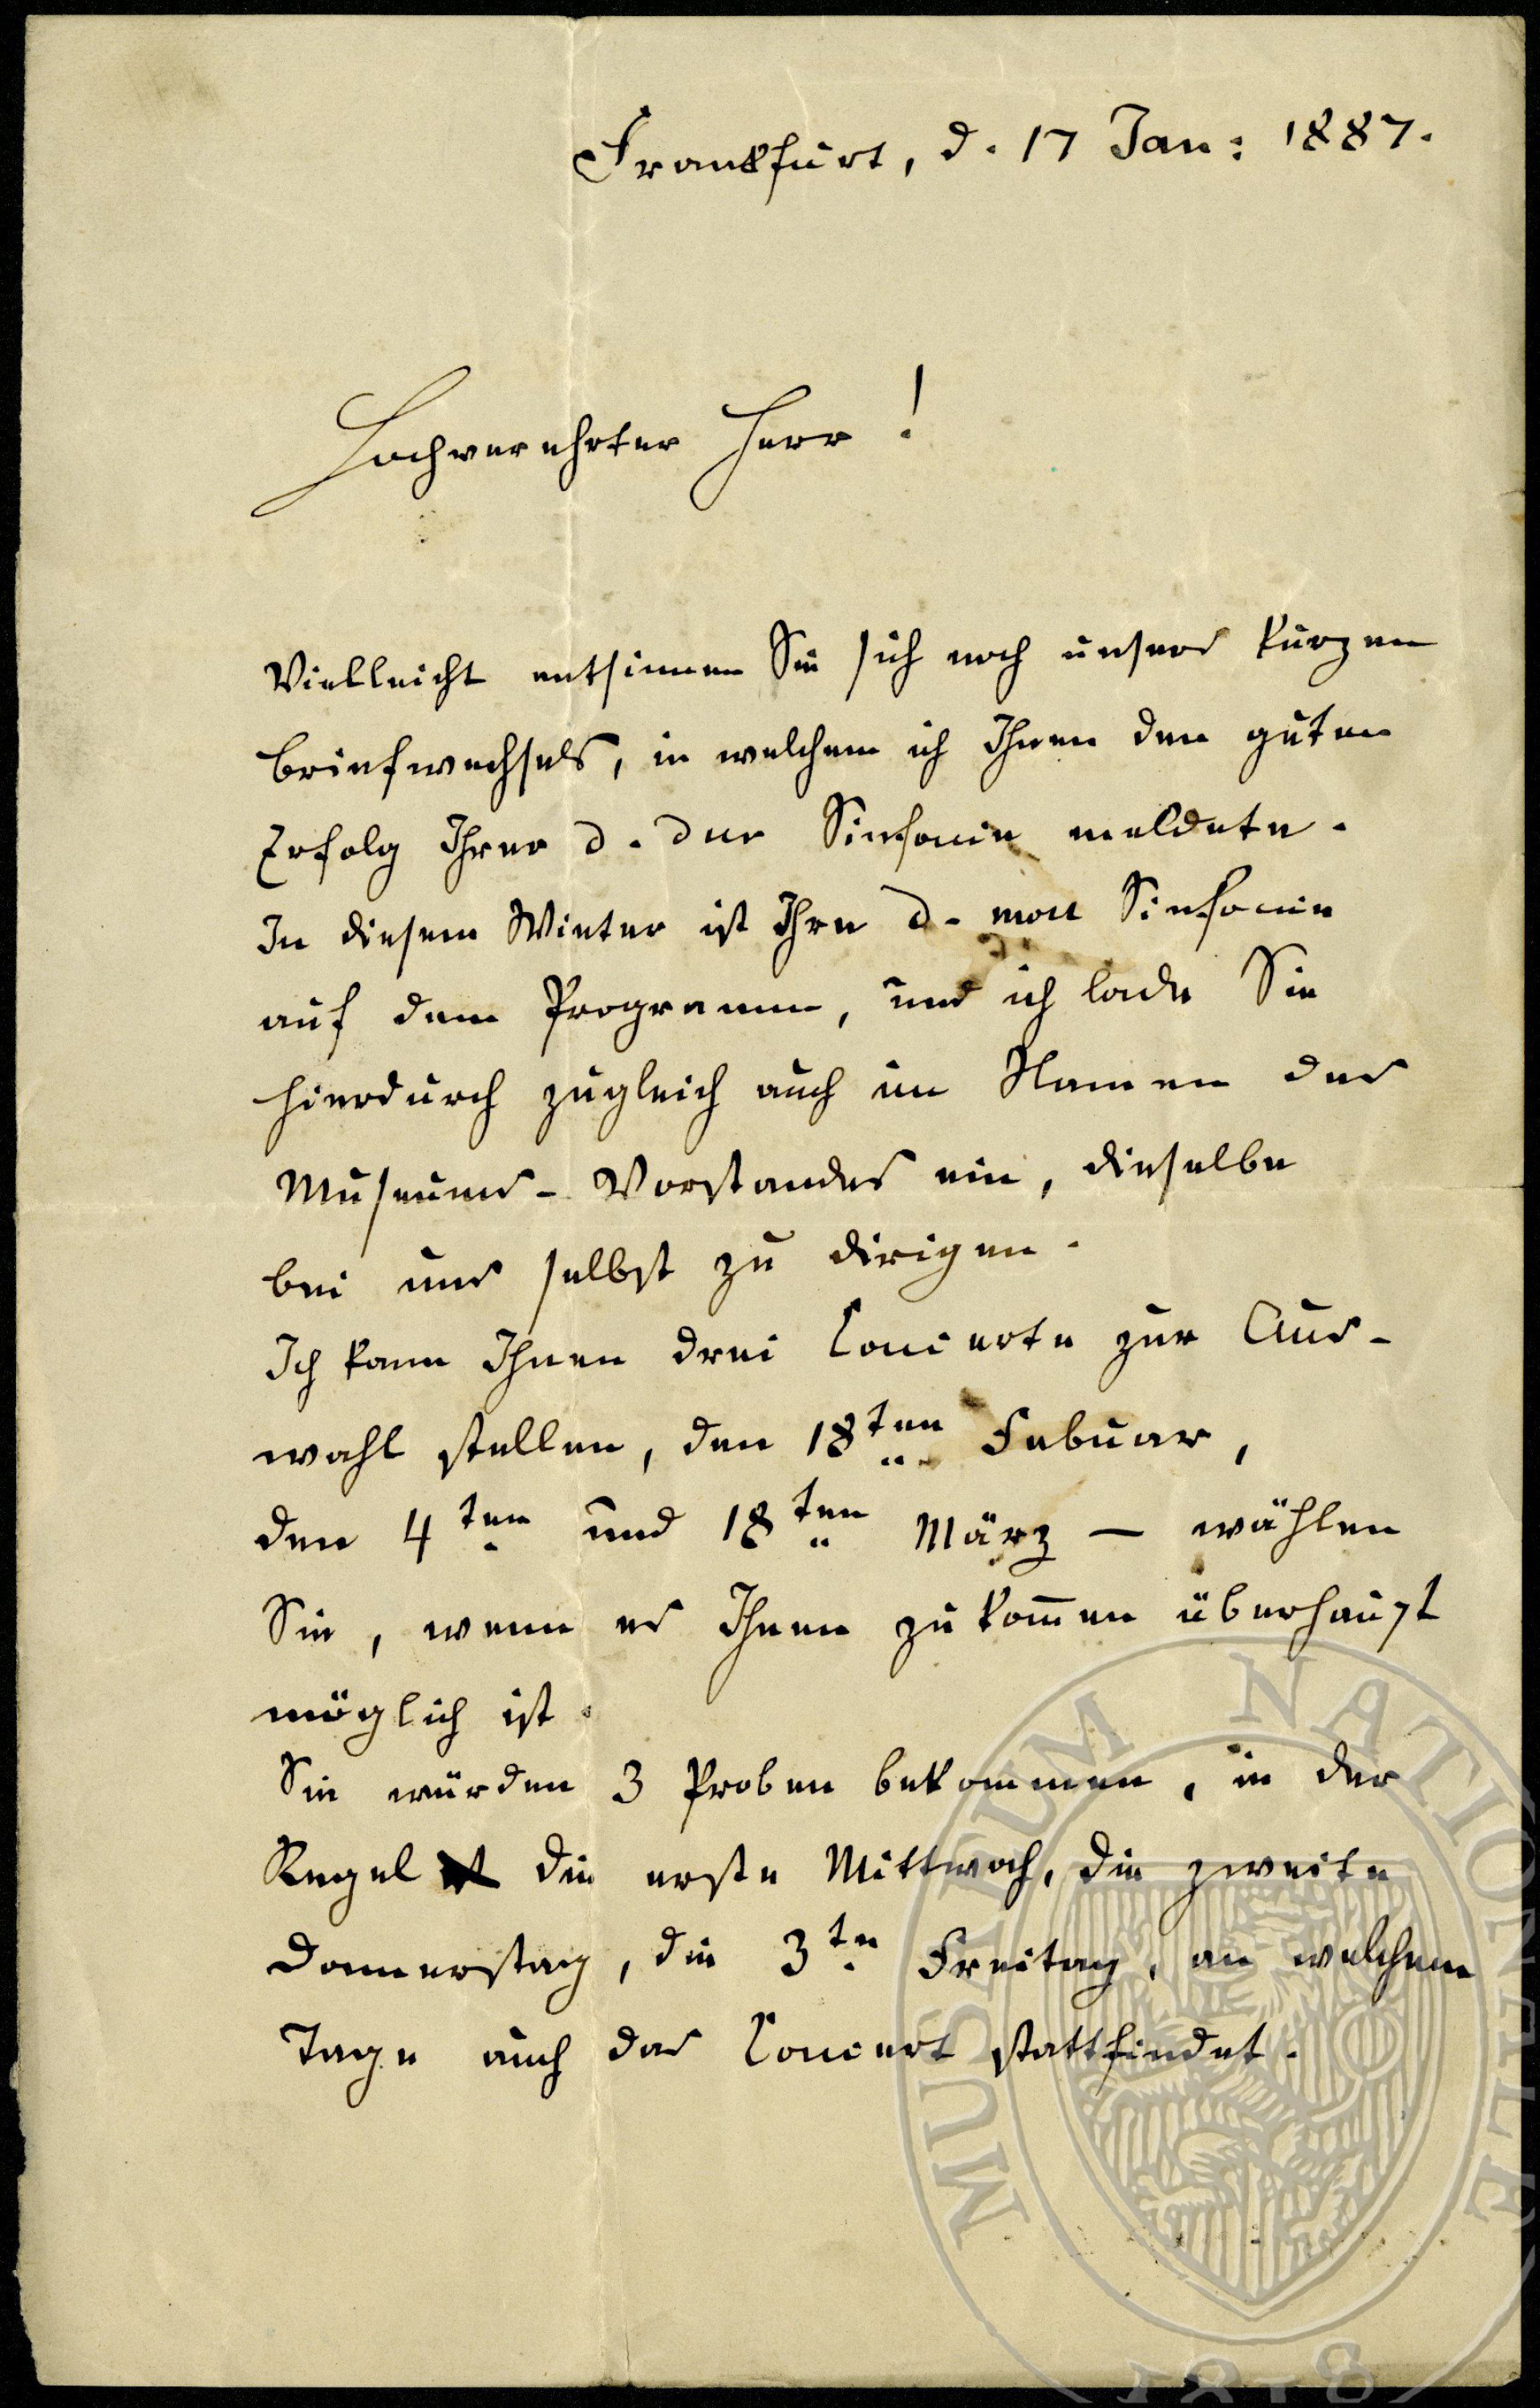 Frankfurt, d. 17 Jan: 1887.
Hochverehrter Herr!
Vielleicht entsinnen Sie sich noch unsers kurzen
Briefwechsels, in welchem ich Ihnen den guten
Erfolg Ihrer d. dur Sinfonie meldete.
In diesem Winter ist Ihre d-moll Sinfonie
auf dem Programm, und ich lade Sie
hierdurch zugleich auch im Namen des
Museums-Vorstandes ein, dieselbe
bei uns selbst zu dirigen.
Ich kann Ihnen drei Concerte zur Aus-
wahl stellen, den 18ten Febuar,
den 4ten und 18ten März — wählen
Sie, wenn es Ihnen zu kom̅en überhaupt
möglich ist.
Sie würden 3 Proben bekommen, in der
Regel die erste Mittwoch, die zweite
Donnerstag, die 3te Freitag, an welchem
Tage auch das Concert stattfindet.
MUSAEUM NATIONALE
1818